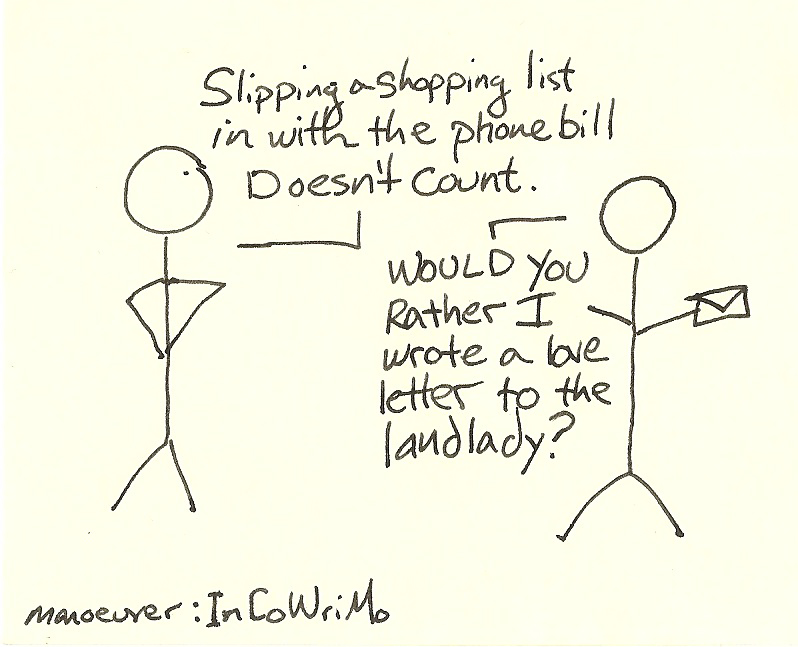 Slipping a shopping list
in with the phone bill
Doesn't Count.
WOULD YOU
Rather I
wrote a love
letter to the
landlady?
manoeuver: InCoWriMo